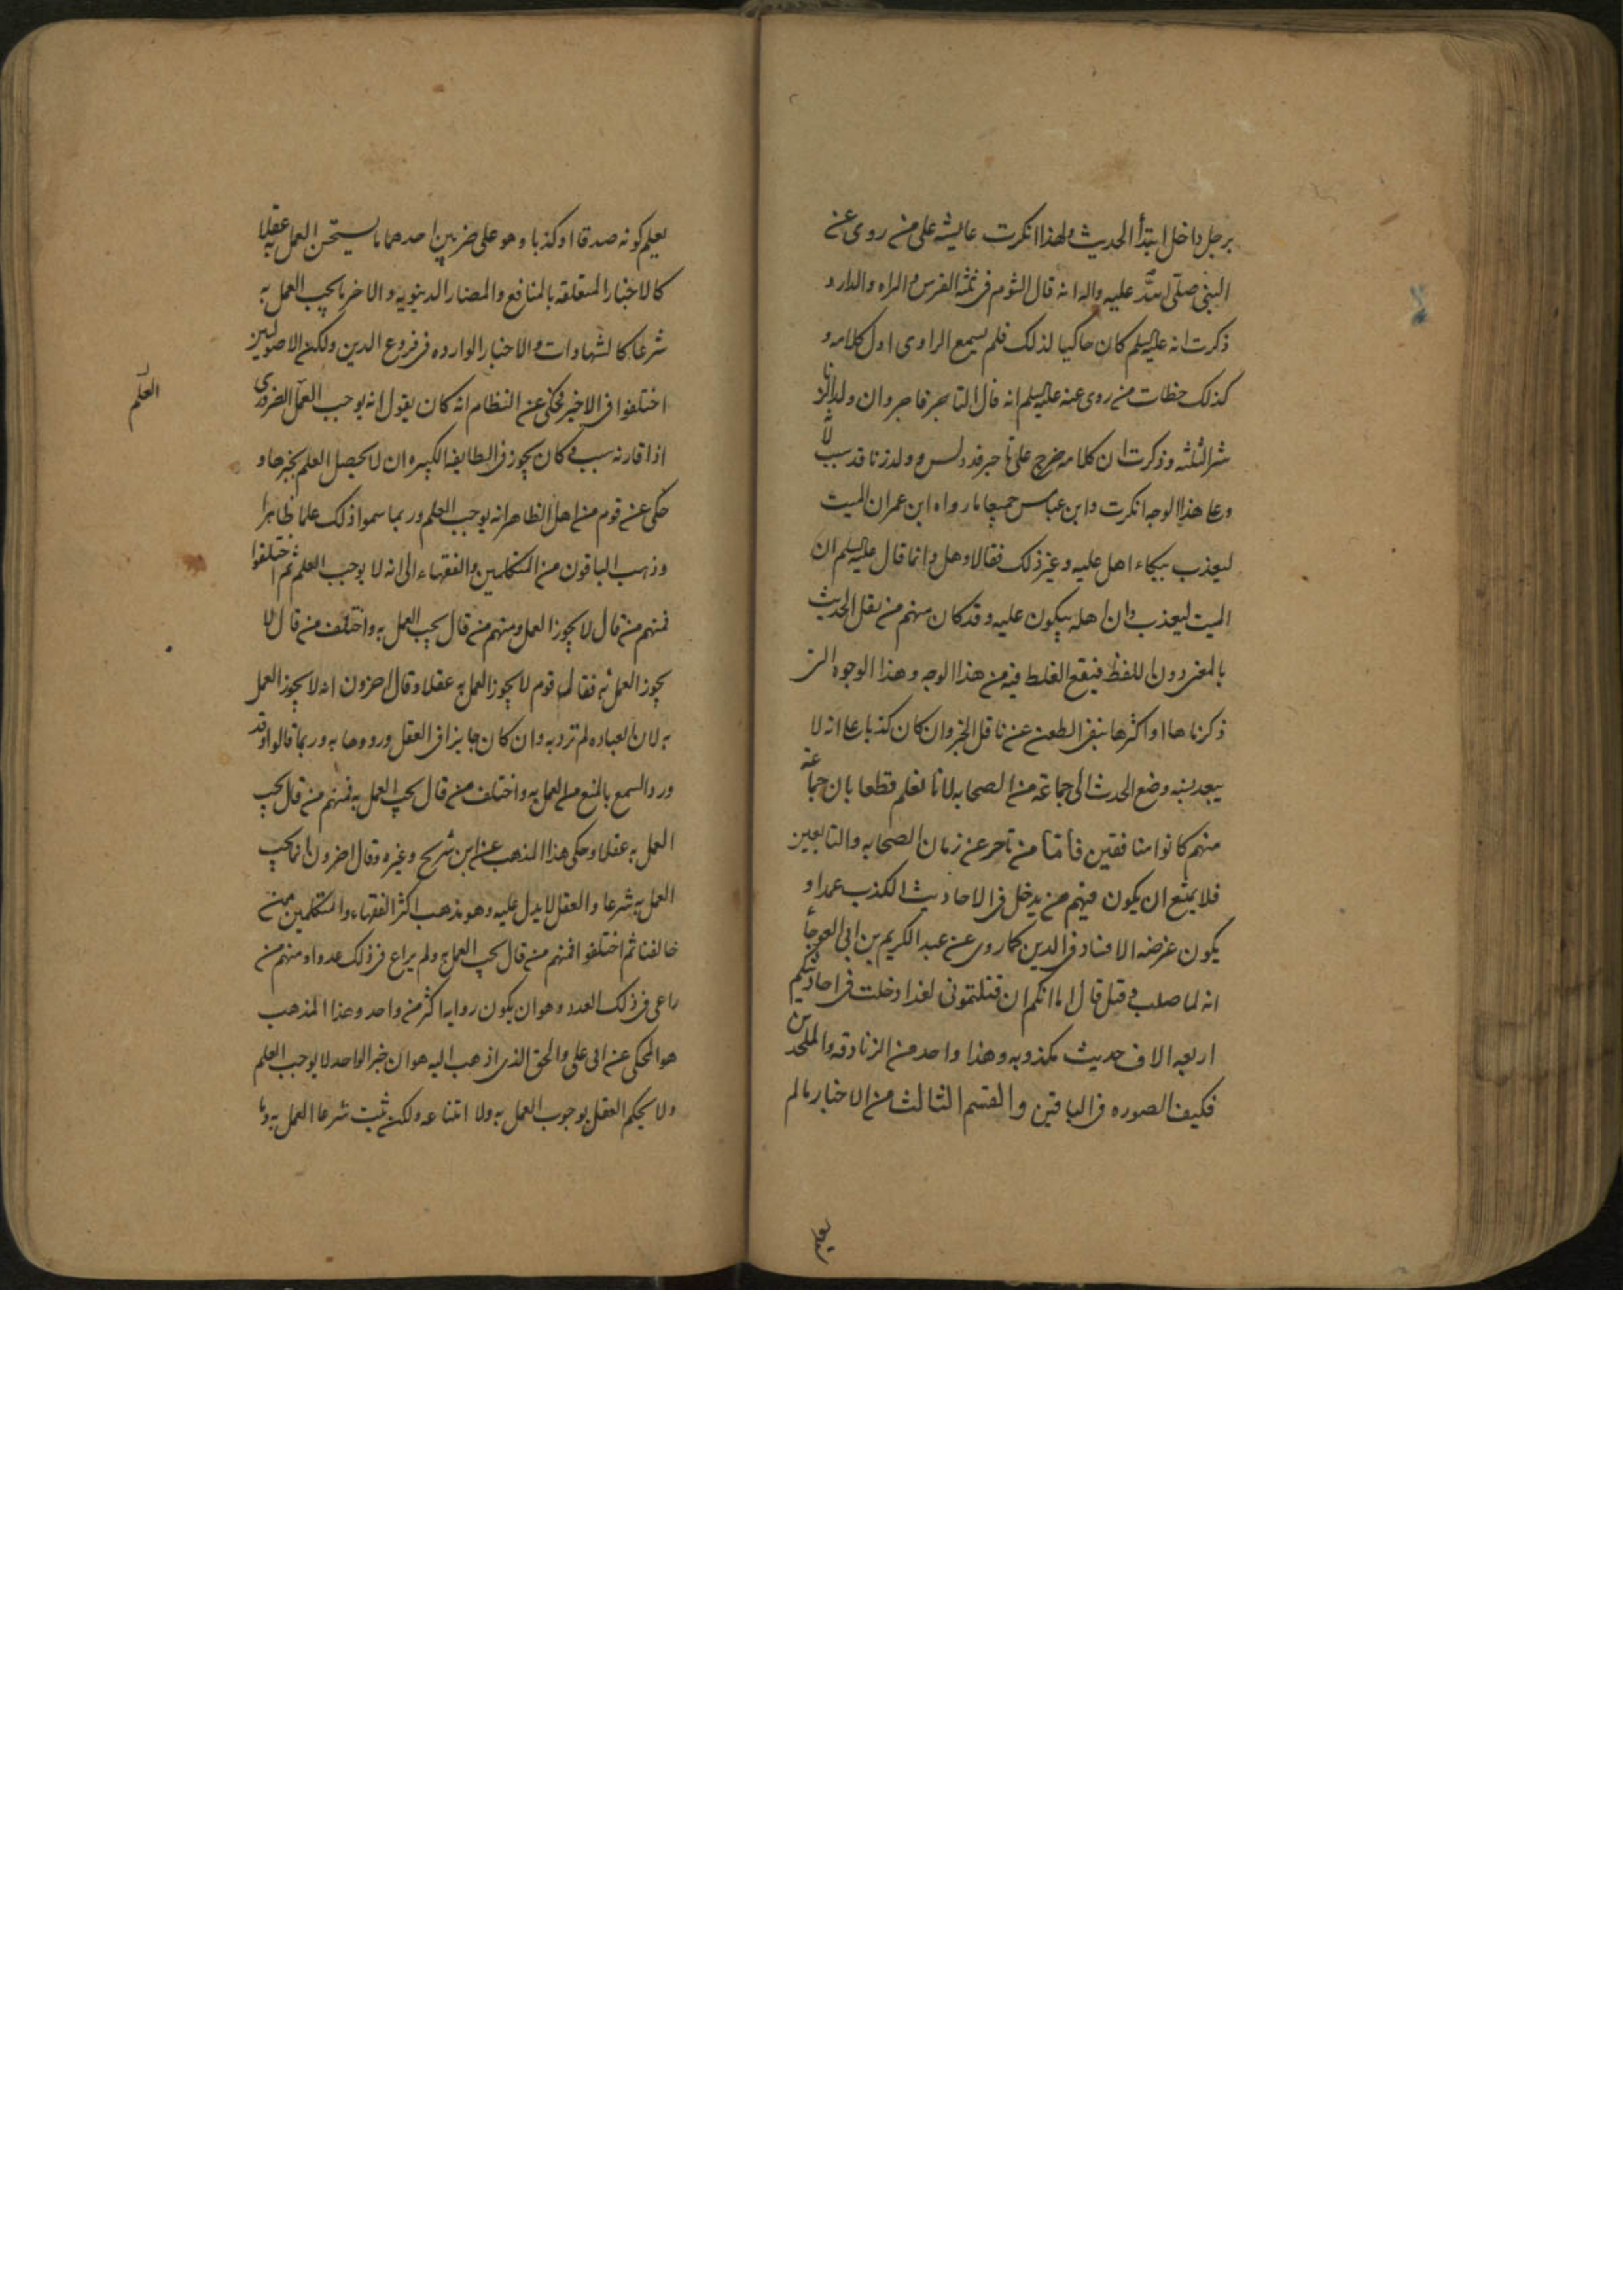 برجل داخل ابتدأ الحديث ولهذا انكرت عايشه على من روى عن
النبى صلى الله عليه واله انه قال الشوم فى ثلثه الفرس والمراه والدار و
ذكرت انه عليه السلم كان حاكيا لذلك فلم يسمع الراوى اول كلامه و
كذلك خطات من روى عنه عليه السلم انه قال التاجر فاجر وان ولد الزنا
شر الثلثه وذكرت ان كلامه خرج على تاجر قد دلس و ولد زنا قد سب
وعلى هذا الوجه انكرت وابن عباس جميعا ما رواه ابن عمر ان الميت
ليعذب ببكاء اهل عليه وغير ذلك فقالا وهل وانما قال عليه السلم ان
الميت ليعذب وان اهله يبكون عليه وقد كان منهم من نقل الحديث
بالمعنى دون اللفظ فيقع الغلط فيه من هذا الوجه وهذا الوجوه التى
ذكرناها او اكثرها ينفى الطعن عن ناقل الخبر وان كان كذبا على انه لا
يبعد نسبه وضع الحديث الى جماعة من الصحابه لانا نعلم قطعا بان جماعه
منهم كانوا منافقين فأمّا من تاخر عن زمان الصحابه والتابعين
فلا يمتنع ان يكون فيهم من يدخل فى الاحاديث الكذب عمدا و
يكون غرضه الافساد فى الدين كما روى عن عبد الكريم بن ابى العوجأ
انه لما صلب وقتل قال اما انكم ان قتلتمونى لقد ادخلت فى احاديثكم
اربعه الاف حديث مكذوبه وهذا واحد من الزنادقه والملحدين
فكيف الصوره فى الباقين والقسم الثالث من الاخبار ما لم
يعلم
يعلم كونه صدقا او كذبا وهو على ضربين احدهما ما يستحق العمل به عقلا
كالاخبار المتعلقه بالمنافع والمضار الدنيويه والاخر ما يجب العمل به
شرعا كالشهادات والاخبار الوارده فى فروع الدين ولكن الاصوليين
اختلفوا فى الاخير فحكى عن النظام انه كان يقول انه يوجب العلم الضرورى
العلم
اذا قارنه سبب وكان يجوز فى الطايفه الكبيره ان لا يحصل العلم بخبرها و
حكى عن قوم من اهل الظاهر انه يوجب العلم وربما سموا ذلك علما ظاهرا
وذهب الباقون من المتكلمين والفقهاء الى انه لا يوجب العلم ثم اختلفوا
فمنهم من قال لا يجوز العمل ومنهم من قال يجب العمل به واختلف من قال لا
يجوز العمل به فقال قوم لا يجوز العمل به عقلا وقال اخرون انه لا يجوز العمل
به لان العباده لم ترد به وان كان جايزا فى العقل ورودها به وربما قالوا وقد
ورد السمع بالمنع من العمل به واختلف من قال يجب العمل به فمنهم من قال يجب
العمل به عقلا وحكى هذا المذهب عن ابن شريح وغيره وقال اخرون انما يجب
العمل به شرعا والعقل لا يدل عليه وهو مذهب اكثر الفقهاء والمتكلمين ممن
خالفنا ثم اختلفوا فمنهم من قال يجب العمل به ولم يراع فى ذلك عددا ومنهم من
راعى فى ذلك العدد وهو ان يكون روايه اكثر من واحد وهذا المذهب
هو المحكى عن ابى على والحق الذى اذهب اليه هو ان خبر الواحد لا يوجب العلم
ولا يحكم العقل بوجوب العمل به ولا امتناعه ولكن ثبت شرعا العمل به